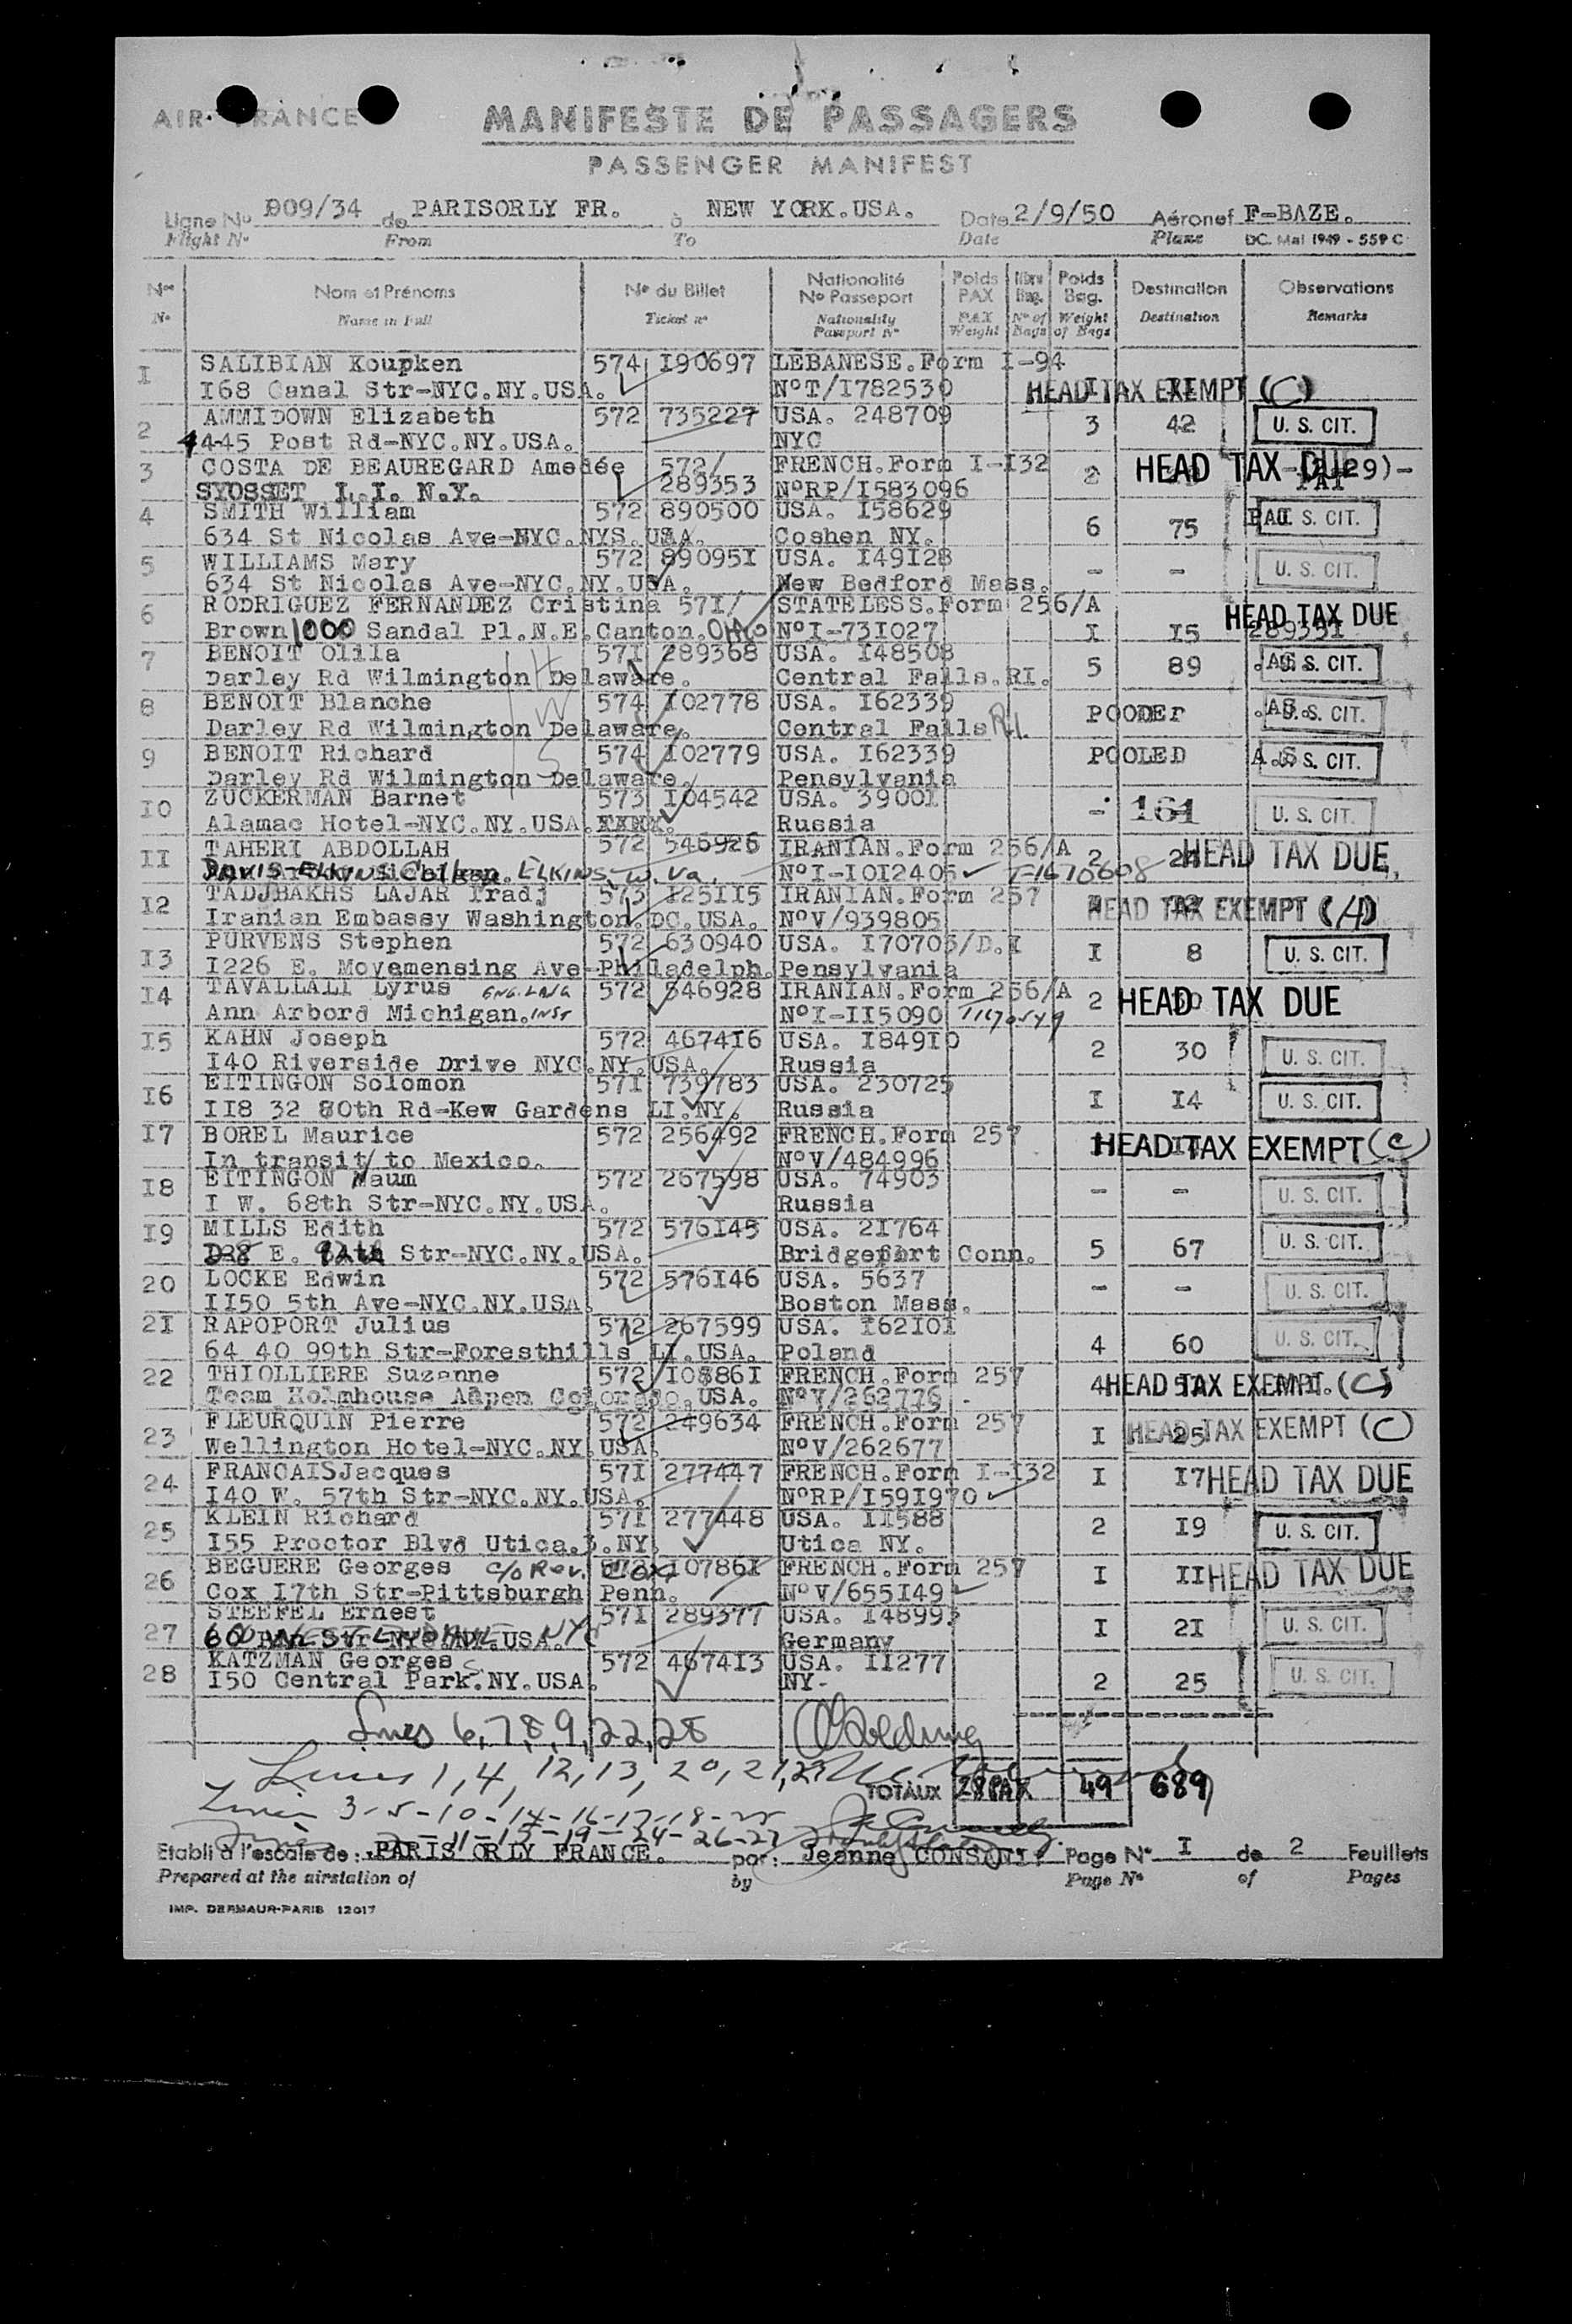 AIR FRANCE
MANIFESTE DE PASSAGERS
PASSENGER MANIFEST
Ligne No 009/34 de PARISORLY FR. à NEW YORK.USA. Date 2/9/50 Aéronef F-BAZE.
Flight No From To Date Plane DC. Mai 1949 - 559 C
Nos Nom et Prénoms No du Billet Nationalité No Passeport Poids PAX Nbre Bag. Poids Bag. Destination Observations
No Name in Full Ticket no Nationality Passport No PAX Weight No of Bags Weight of Bags Destination Remarks
I SALIBIAN Koupken 574 I90697 LEBANESE.Form I-94
I68 Canal Str-NYC.NY.USA. NoT/I782530 HEAD TAX EXEMPT (C)
2 AMMIDOWN Elizabeth 572 735227 USA. 248709
4445 Post Rd-NYC.NY.USA. NYC 3 42 U. S. CIT.
3 COSTA DE BEAUREGARD Amedée 572/ FRENCH.Form I-I32
SYOSSET L.I. N.Y. 289353 NoRP/I583096 2 HEAD TAX DUE
4 SMITH William 572 890500 USA. I58629
634 St Nicolas Ave-NYC.NYS.USA. Coshen NY. 6 75 U. S. CIT.
5 WILLIAMS Mary 572 890951 USA. I49I28
634 St Nicolas Ave-NYC.NY.USA. New Bedford Mass. - - U. S. CIT.
6 RODRIGUEZ FERNANDEZ Cristina 57I/ STATELESS.Form 256/A
Brown 1000 Sandal Pl.N.E.Canton.Ohio NoI-73I027 I I5 289351 HEAD TAX DUE
7 BENOIT Olila 57I 289368 USA. I48508
Darley Rd Wilmington Delaware. H Central Falls.RI. 5 89 U. S. CIT.
8 BENOIT Blanche 574 I02778 USA. I62339
Darley Rd Wilmington Delaware. W Central Falls R.I. POODEr U. S. CIT.
9 BENOIT Richard 574 I02779 USA. I62339
Darley Rd Wilmington Delaware S Pensylvania POOLED U. S. CIT.
I0 ZUCKERMAN Barnet 573 I04542 USA. 3900I
Alamac Hotel-NYC.NY.USA. Russia - 161 U. S. CIT.
II TAHERI ABDOLLAH 572 546926 IRANIAN.Form 256/A
DAVIS-ELKINS College. ELKINS, W. Va. NoI-I0I2405 T-1670608 2 HEAD TAX DUE,
I2 TADJBAKHS LAJAR Iradj 573 I25II5 IRANIAN.Form 257
Iranian Embassy Washington.DC.USA. NoV/939805 HEAD TAX EXEMPT (A)
I3 PURVENS Stephen 572 630940 USA. I70705/D.I
I226 E. Moyamensing Ave-Philadelph. Pensylvania I 8 U. S. CIT.
I4 TAVALLALI Lyrus ENG. LANG 572 546928 IRANIAN.Form 256/A
Ann Arbord Michigan. INST NoI-II5090 2 HEAD TAX DUE
I5 KAHN Joseph 572 4674I6 USA. I849I0
I40 Riverside Drive NYC.NY.USA. Russia 2 30 U. S. CIT.
I6 EITINGON Solomon 57I 739783 USA. 230725
II8 32 80th Rd-Kew Gardens LI.NY. Russia I I4 U. S. CIT.
I7 BOREL Maurice 572 256492 FRENCH.Form 257
In transit to Mexico. NoV/484996 HEAD TAX EXEMPT (C)
I8 EITINGON Naum 572 267598 USA. 74903
I W. 68th Str-NYC.NY.USA. Russia - - U. S. CIT.
I9 MILLS Edith 572 576I45 USA. 2I764
E. Str-NYC.NY.USA. Bridgeport Conn. 5 67 U. S. CIT.
20 LOCKE Edwin 572 576I46 USA. 5637
II50 5th Ave-NYC.NY.USA. Boston Mass. - - U. S. CIT.
2I RAPOPORT Julius 572 267599 USA. I62I0I
64 40 99th Str-Foresthills LI.USA. Poland 4 60 U. S. CIT.
22 THIOLLIERE Suzanne 572 FRENCH.Form 257
Team Holmhouse Aspen Colorado.USA. NoV/262776 4 HEAD TAX EXEMPT. (C)
23 FLEURQUIN Pierre 572 249634 FRENCH.Form 257
Wellington Hotel-NYC.NY.USA. NoV/262677 I 25 HEAD TAX EXEMPT (C)
24 FRANCAISJacques 57I 277447 FRENCH.Form I-I32
I40 W. 57th Str-NYC.NY.USA. NoRP/I59I970 I I7 HEAD TAX DUE
25 KLEIN Richard 57I 277448 USA. II588
I55 Proctor Blvd Utica.3.NY. Utica NY. 2 I9 U. S. CIT.
26 BEGUERE Georges c/o Rev. Cox I0786I FRENCH.Form 257
Cox I7th Str-Pittsburgh Penn. NoV/655I49 I II HEAD TAX DUE
27 STEEFEL Ernest 57I 289377 USA. I48995
NYC Germany I 2I U. S. CIT.
28 KATZMAN Georges 572 4674I3 USA. II277
I50 Central Park.NY.USA. NY- 2 25 U. S. CIT.
Lines 6,7,8,9,22,28
Lines 1,4,12,13,20,21,23
TOTAUX 28PAX 49 689
Lines 3-5-10-14-16-17-18-25
2-11-15-19-24-26-27
Etabli à l'escale de: PARIS ORLY FRANCE. par: Jeanne Page No I de 2 Feuillets
Prepared at the airstation of by Page No of Pages
IMP. DERMAUR-PARIS 12017